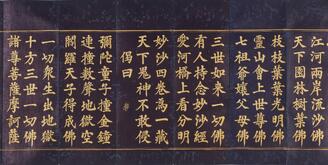 江河兩岸流沙佛
天下園林樹葉佛
枝枝葉葉光明佛
靈山會上世尊佛
七祖爺孃父母佛
三世如來一切佛
有人持念妙沙經
愛河橋上看分明
妙沙四卷爲一藏
天下鬼神不敢侵
偈曰
彌陀童子撞金鐘
連撞數聲地獄空
閻羅天子得成佛
一切衆生出地獄
十方三世一切佛
諸尊菩薩摩訶薩